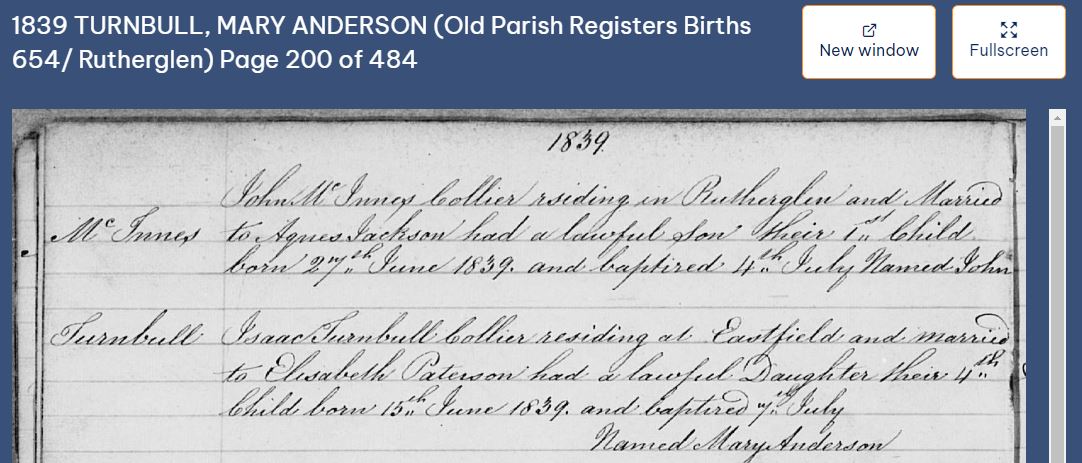 1839 TURNBULL, MARY ANDERSON (Old Parish Registers Births
654/ Rutherglen) Page 200 of 484
New window
Fullscreen
1839.
John Mc Innes Collier rsiding in Rutherglen and Married
Mc Innes to Agnes Jackson had a lawful Son their 1st Child
born 27th June 1839. and baptized 4th July Named John
Turnbull Isaac Turnbull Collier residing at Eastfield and married
to Elisabeth Paterson had a lawful Daughter their 4th
Child born 15th June 1839. and baptized 7th July
Named Mary Anderson